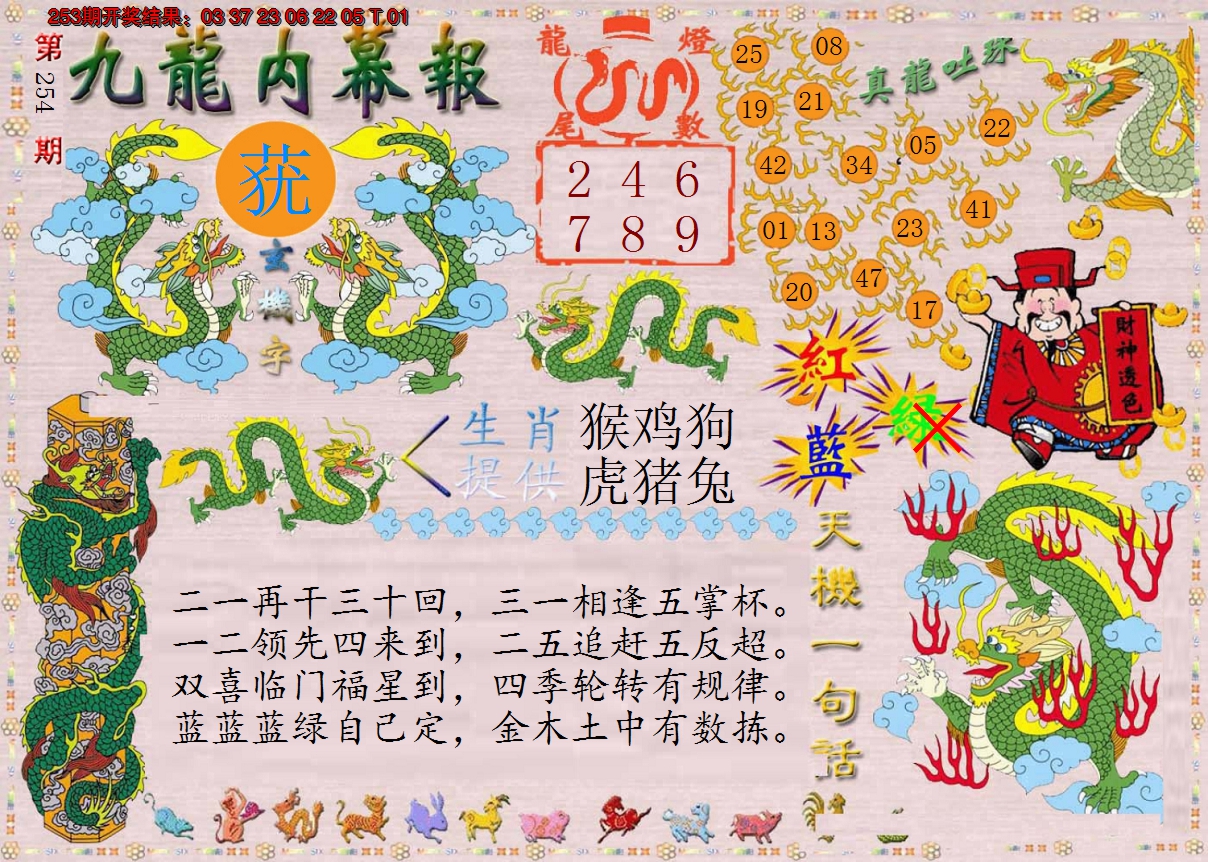 253期开奖结果：03 37 23 06 22 05 T 01
第254期
九龍内幕報
玄機字
龍燈
尾數
2 4 6
7 8 9
真龍吐珠
25
08
19
21
42
34
05
22
01
13
23
41
20
47
17
財神透色
紅
綠
藍
生肖
提供
猴鸡狗
虎猪兔
天機一句話
二一再干三十回，三一相逢五掌杯。
一二领先四来到，二五追赶五反超。
双喜临门福星到，四季轮转有规律。
蓝蓝蓝绿自己定，金木土中有数拣。